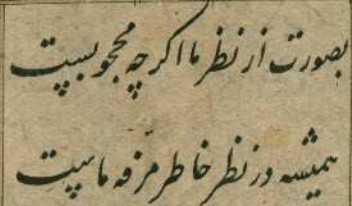 بصورت از نظر ما اگرچه محجوبست
همیشه در نظر خاطر مرفه ماست